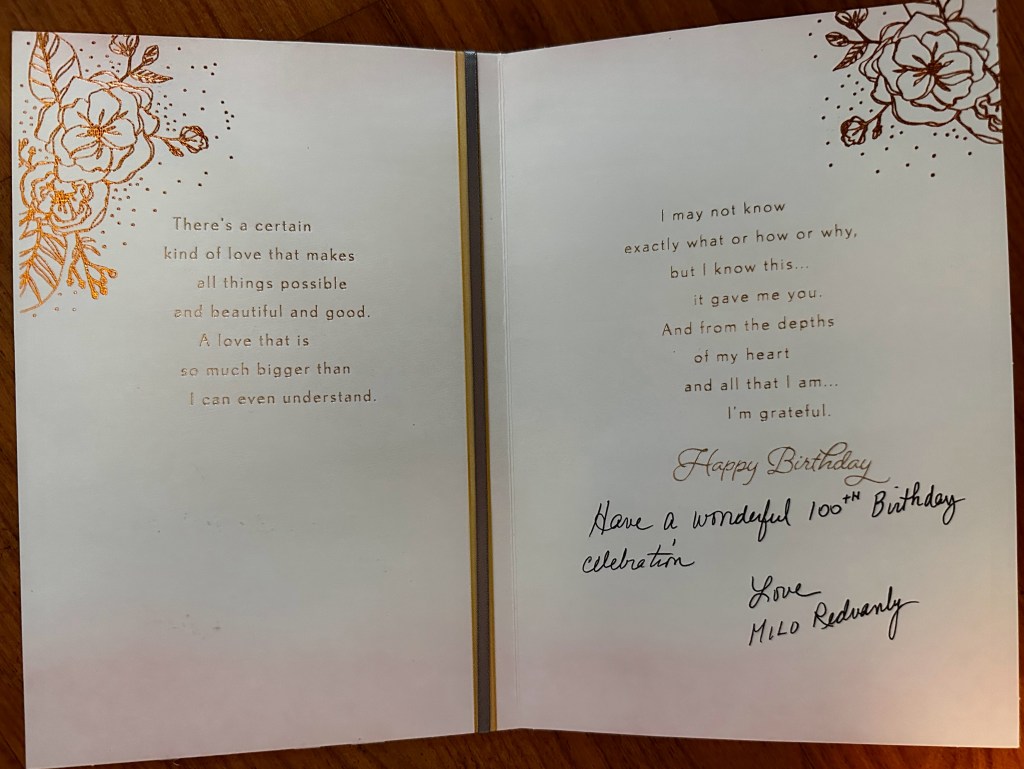 There's a certain
kind of love that makes
all things possible
and beautiful and good.
A love that is
so much bigger than
I can even understand.
I may not know
exactly what or how or why,
but I know this...
it gave me you.
And from the depths
of my heart
and all that I am...
I'm grateful.
Happy Birthday
Have a wonderful 100TH Birthday
celebration
Love
MILO Redvanly